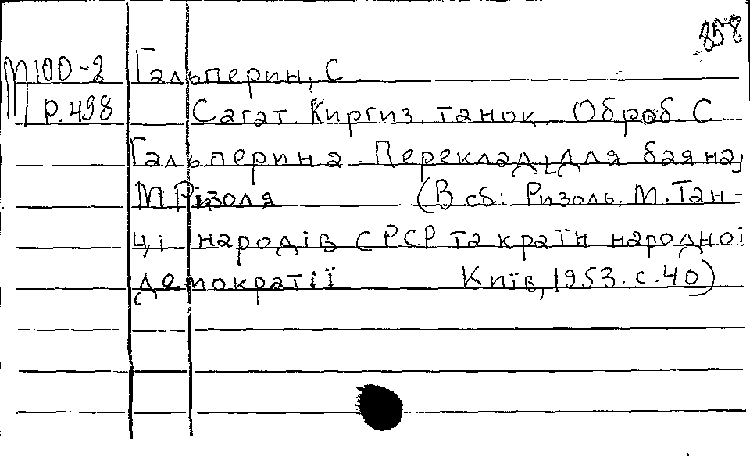 858
М100-2 Гальперин, С
Р.498 Сагат. Киргиз. танок. Оброб. С
Гальперина. Переклад для баяна,
М. Різоля (В сб: Ризоль, М. Тан-
ці народів СРСР та країн народної
демократії Київ, 1953. с. 40)